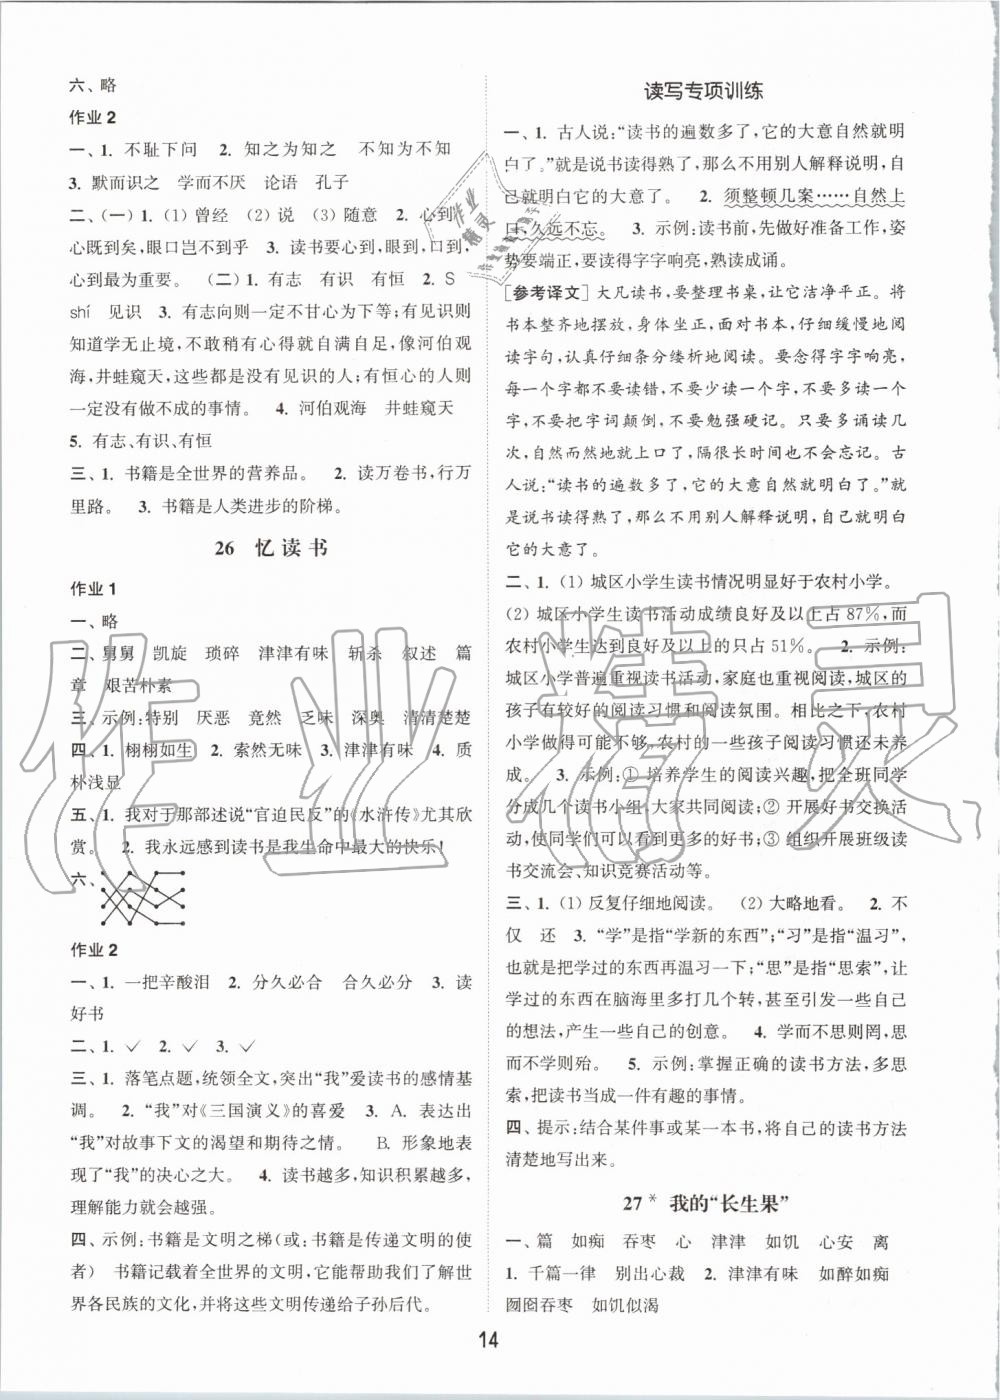 六、略
作业 2
一、1. 不耻下问　2. 知之为知之　不知为不知
3. 默而识之　学而不厌　论语　孔子
二、(一) 1. (1) 曾经　(2) 说　(3) 随意　2. 心到,
心既到矣,眼口岂不到乎　3. 读书要心到,眼到,口到,
心到最为重要。　(二) 1. 有志　有识　有恒　2. S
shí　见识　3. 有志向则一定不甘心为下等;有见识则
知道学无止境,不敢稍有心得就自满自足,像河伯观
海,井蛙窥天,这些都是没有见识的人;有恒心的人则
一定没有做不成的事情。　4. 河伯观海　井蛙窥天
5. 有志、有识、有恒
三、1. 书籍是全世界的营养品。　2. 读万卷书,行万
里路。　3. 书籍是人类进步的阶梯。
26　忆读书
作业 1
一、略
二、舅舅　凯旋　琐碎　津津有味　斩杀　叙述　篇
章　艰苦朴素
三、示例:特别　厌恶　竟然　乏味　深奥　清清楚楚
四、1. 栩栩如生　2. 索然无味　3. 津津有味　4. 质
朴浅显
五、1. 我对于那部述说“官迫民反”的《水浒传》尤其欣
赏。　2. 我永远感到读书是我生命中最大的快乐!
六、
作业 2
一、1. 一把辛酸泪　2. 分久必合　合久必分　3. 读
好书
二、1. ✓　2. ✓　3. ✓
三、1. 落笔点题,统领全文,突出“我”爱读书的感情基
调。　2. “我”对《三国演义》的喜爱　3. A. 表达出
“我”对故事下文的渴望和期待之情。　B. 形象地表
现了“我”的决心之大。　4. 读书越多,知识积累越多,
理解能力就会越强。
四、示例:书籍是文明之梯(或:书籍是传递文明的使
者)　书籍记载着全世界的文明,它能帮助我们了解世
界各民族的文化,并将这些文明传递给子孙后代。
读写专项训练
一、1. 古人说:“读书的遍数多了,它的大意自然就明
白了。”就是说书读得熟了,那么不用别人解释说明,自
己就明白它的大意了。　2. 须整顿几案……自然上
口,久远不忘。　3. 示例:读书前,先做好准备工作,姿
势要端正,要读得字字响亮,熟读成诵。
[参考译文] 大凡读书,要整理书桌,让它洁净平正。将
书本整齐地摆放,身体坐正,面对书本,仔细缓慢地阅
读字句,认真仔细条分缕析地阅读。要念得字字响亮,
每一个字都不要读错,不要少读一个字,不要多读一个
字,不要把字词颠倒,不要勉强硬记。只要多诵读几
次,自然而然地就上口了,隔很长时间也不会忘记。古
人说:“读书的遍数多了,它的大意自然就明白了。”就
是说书读得熟了,那么不用别人解释说明,自己就明白
它的大意了。
二、1. (1) 城区小学生读书情况明显好于农村小学。
(2) 城区小学生读书活动成绩良好及以上占 87%,而
农村小学生达到良好及以上的只占 51%。　2. 示例:
城区小学普遍重视读书活动,家庭也重视阅读,城区的
孩子有较好的阅读习惯和阅读氛围。相比之下,农村
小学做得可能不够,农村的一些孩子阅读习惯还未养
成。　3. 示例:① 培养学生的阅读兴趣,把全班同学
分成几个读书小组,大家共同阅读;② 开展好书交换活
动,使同学们可以看到更多的好书;③ 组织开展班级读
书交流会、知识竞赛活动等。
三、1. (1) 反复仔细地阅读。　(2) 大略地看。　2. 不
仅　还　3. “学”是指“学新的东西”;“习”是指“温习”,
也就是把学过的东西再温习一下;“思”是指“思索”,让
学过的东西在脑海里多打几个转,甚至引发一些自己
的想法,产生一些自己的创意。　4. 学而不思则罔,思
而不学则殆。　5. 示例:掌握正确的读书方法,多思
索,把读书当成一件有趣的事情。
四、提示:结合某件事或某一本书,将自己的读书方法
清楚地写出来。
27 * 我的“长生果”
一、篇　如痴　吞枣　心　津津　如饥　心安　离
1. 千篇一律　别出心裁　2. 津津有味　如醉如痴
囫囵吞枣　如饥似渴
14
作业精灵